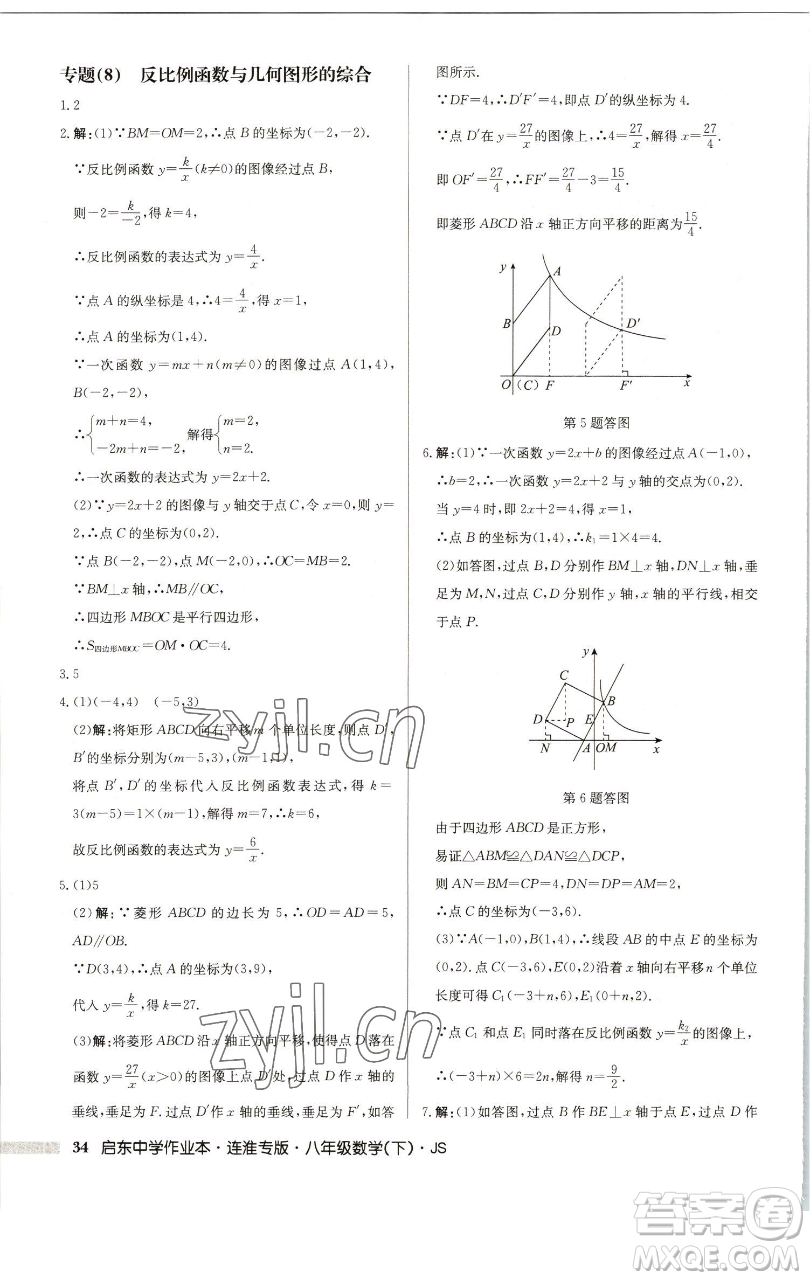 专题(8) 反比例函数与几何图形的综合
1.2
2.解:(1)∵BM=OM=2,∴点 B 的坐标为(-2,-2).
∵反比例函数 y=k/x(k≠0)的图像经过点 B,
则-2=k/-2,得 k=4,
∴反比例函数的表达式为 y=4/x.
∵点 A 的纵坐标是 4,∴4=4/x,得 x=1,
∴点 A 的坐标为(1,4).
∵一次函数 y=mx+n(m≠0)的图像过点 A(1,4),
B(-2,-2),
∴{m+n=4, -2m+n=-2, 解得{m=2, n=2.
∴一次函数的表达式为 y=2x+2.
(2)∵y=2x+2 的图像与 y 轴交于点 C,令 x=0,则 y=
2,∴点 C 的坐标为(0,2).
∵点 B(-2,-2),点 M(-2,0),∴OC=MB=2.
∵BM⊥x 轴,∴MB∥OC,
∴四边形 MBOC 是平行四边形,
∴S四边形MBOC=OM·OC=4.
3.5
4.(1)(-4,4) (-5,3)
(2)解:将矩形 ABCD 向右平移 m 个单位长度,则点 D′,
B′的坐标分别为(m-5,3),(m-1,1),
将点 B′,D′的坐标代入反比例函数表达式,得 k=
3(m-5)=1×(m-1),解得 m=7,∴k=6,
故反比例函数的表达式为 y=6/x.
5.(1)5
(2)解:∵菱形 ABCD 的边长为 5,∴OD=AD=5,
AD∥OB.
∵D(3,4),∴点 A 的坐标为(3,9),
代入 y=k/x,得 k=27.
(3)解:将菱形 ABCD 沿 x 轴正方向平移,使得点 D 落在
函数 y=27/x(x>0)的图像上点 D′处,过点 D 作 x 轴的
垂线,垂足为 F.过点 D′作 x 轴的垂线,垂足为 F′,如答
图所示.
∵DF=4,∴D′F′=4,即点 D′的纵坐标为 4.
∵点 D′在 y=27/x的图像上,∴4=27/x,解得 x=27/4,
即 OF′=27/4,∴FF′=27/4-3=15/4.
即菱形 ABCD 沿 x 轴正方向平移的距离为15/4.
y A B D D′ O (C) F F′ x
第 5 题答图
6.解:(1)∵一次函数 y=2x+b 的图像经过点 A(-1,0),
∴b=2,∴一次函数 y=2x+2 与 y 轴的交点为(0,2).
当 y=4 时,即 2x+2=4,得 x=1.
∴点 B 的坐标为(1,4),∴k₁=1×4=4.
(2)如答图,过点 B,D 分别作 BM⊥x 轴,DN⊥x 轴,垂
足为 M,N,过点 C,D 分别作 y 轴、x 轴的平行线,相交
于点 P.
y C B D P E N A O M x
第 6 题答图
由于四边形 ABCD 是正方形,
易证△ABM≌△DAN≌△DCP,
则 AN=BM=CP=4,DN=AM=DP=2,
∴点 C 的坐标为(-3,6).
(3)∵A(-1,0),B(1,4),∴线段 AB 的中点 E 的坐标为
(0,2).点 C(-3,6),点 E(0,2)沿着 x 轴向右平移 n 个单位
长度可得 C₁(-3+n,6),E₁(0+n,2).
∵点 C₁ 和点 E₁ 同时落在反比例函数 y=k₂/x的图像上,
∴(-3+n)×6=2n,解得 n=9/2.
7.解:(1)如答图,过点 B 作 BE⊥x 轴于点 E,过点 D 作
34 启东中学作业本·连淮专版·八年级数学(下)·JS
zyjl.cn
zyjl.cn
答案圈
MXQE.COM